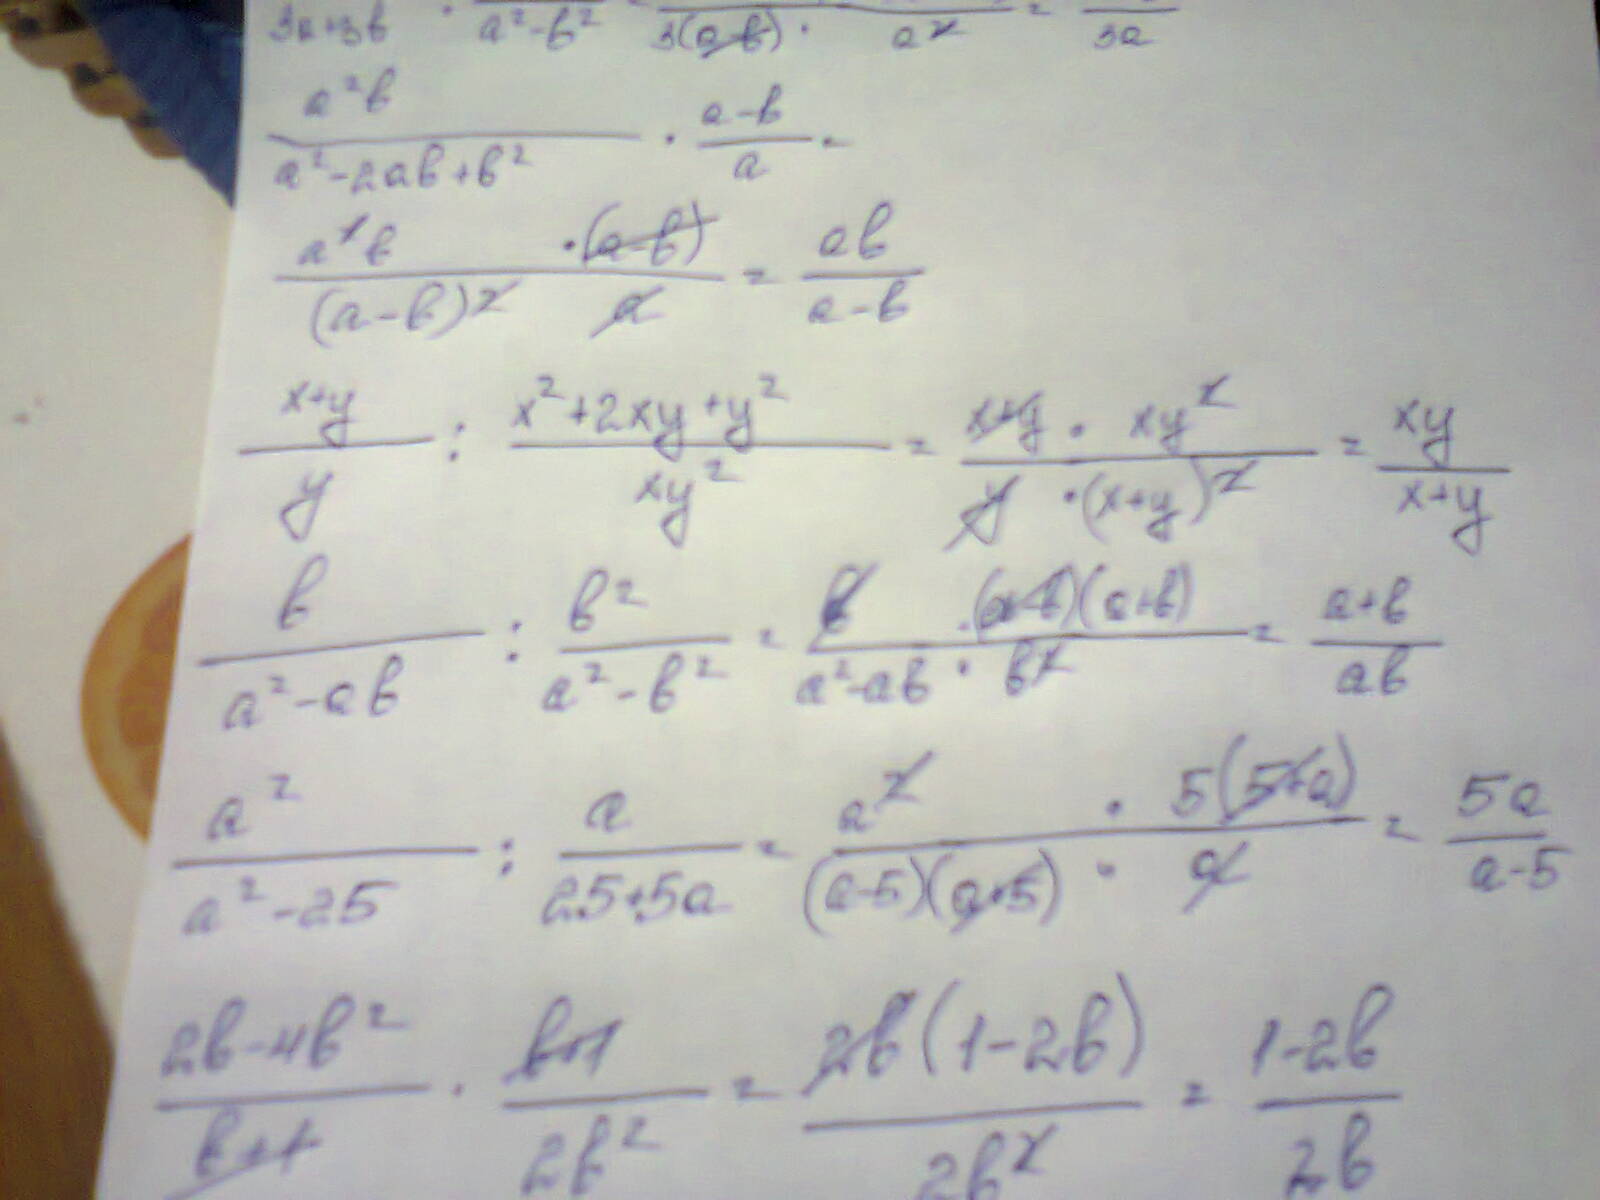 3a+3b · a²-b² 3(a-b) · a² = 3a
a²b / a²-2ab+b² · a-b / a ·
a²b ·(a-b) / (a-b)² a = ab / a-b
x+y / y : x²+2xy+y² / xy² = x+y · xy² / y ·(x+y)² = xy / x+y
b / a²-ab : b² / a²-b² = b ·(a-b)(a+b) / a²-ab · b² = a+b / ab
a² / a²-25 : a / 25+5a = a² · 5(5+a) / (a-5)(a+5) · a = 5a / a-5
2b-4b² / b+1 · b+1 / 2b² = 2b(1-2b) / 2b² = 1-2b / 2b